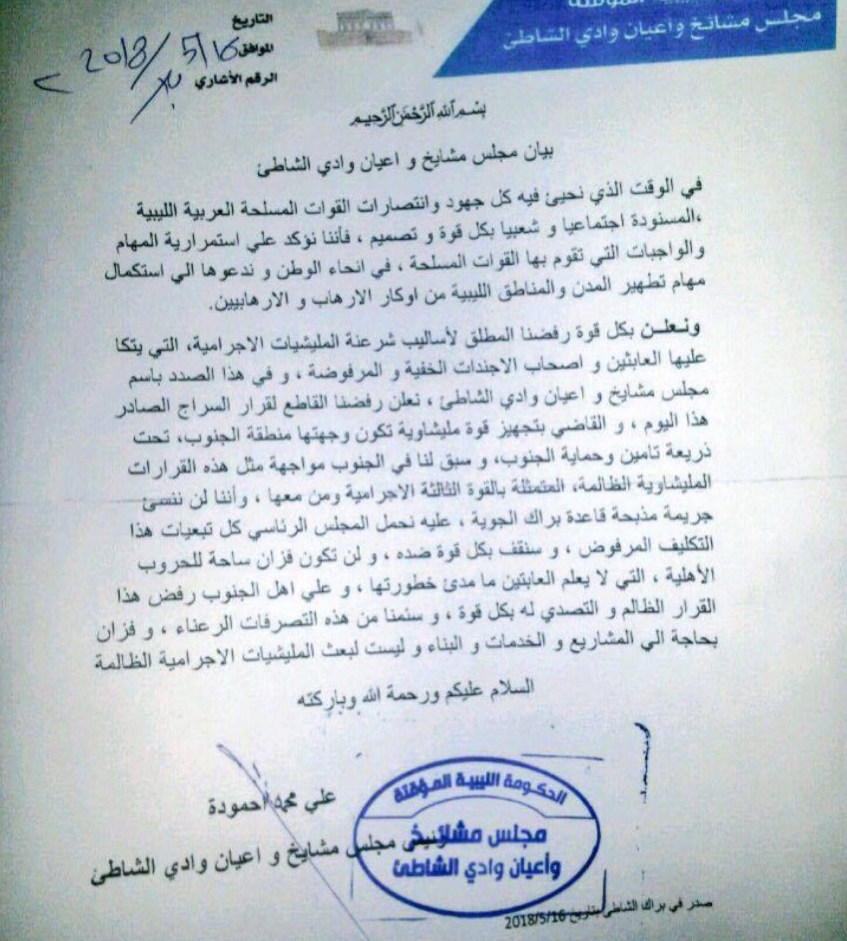 المؤقتة
مجلس مشائخ واعيان وادي الشاطئ
التاريخ
الموافق 2018/5/16
الرقم الأشاري
بسم الله الرحمن الرحيم
بيان مجلس مشايخ و اعيان وادي الشاطئ
في الوقت الذي نحيئ فيه كل جهود وانتصارات القوات المسلحة العربية الليبية
،المسنودة اجتماعيا و شعبيا بكل قوة و تصميم ، فأننا نؤكد علي استمرارية المهام
والواجبات التي تقوم بها القوات المسلحة ، في انحاء الوطن و ندعوها الي استكمال
مهام تطهير المدن والمناطق الليبية من اوكار الارهاب و الارهابيين.
ونعلـن بكل قوة رفضنا المطلق لأساليب شرعنة المليشيات الاجرامية، التي يتكا
عليها العابثين و اصحاب الاجندات الخفية و المرفوضة ، و في هذا الصدد باسم
مجلس مشايخ و اعيان وادي الشاطئ ، نعلن رفضنا القاطع لقرار السراج الصادر
هذا اليوم ، و القاضي بتجهيز قوة مليشاوية تكون وجهتها منطقة الجنوب، تحت
ذريعة تامين وحماية الجنوب، و سبق لنا في الجنوب مواجهة مثل هذه القرارات
المليشاوية الظالمة، المتمثلة بالقوة الثالثة الاجرامية ومن معها ، وأننا لن ننسئ
جريمة مذبحة قاعدة براك الجوية ، عليه نحمل المجلس الرئاسي كل تبعيات هذا
التكليف المرفوض ، و سنقف بكل قوة ضده ، و لن تكون فزان ساحة للحروب
الأهلية ، التي لا يعلم العابتين ما مدئ خطورتها ، و علي اهل الجنوب رفض هذا
القرار الظالم و التصدي له بكل قوة ، و سئمنا من هذه التصرفات الرعناء ، و فزان
بحاجة الي المشاريع و الخدمات و البناء و ليست لبعث المليشيات الاجرامية الظالمة
السلام عليكم ورحمة الله وباركته
علي محمد احمودة
رئيس مجلس مشايخ و اعيان وادي الشاطئ
الحكومة الليبية المؤقتة
مجلس مشائخ
وأعيان وادي الشاطئ
صدر في براك الشاطئ بتاريخ 2018/5/16